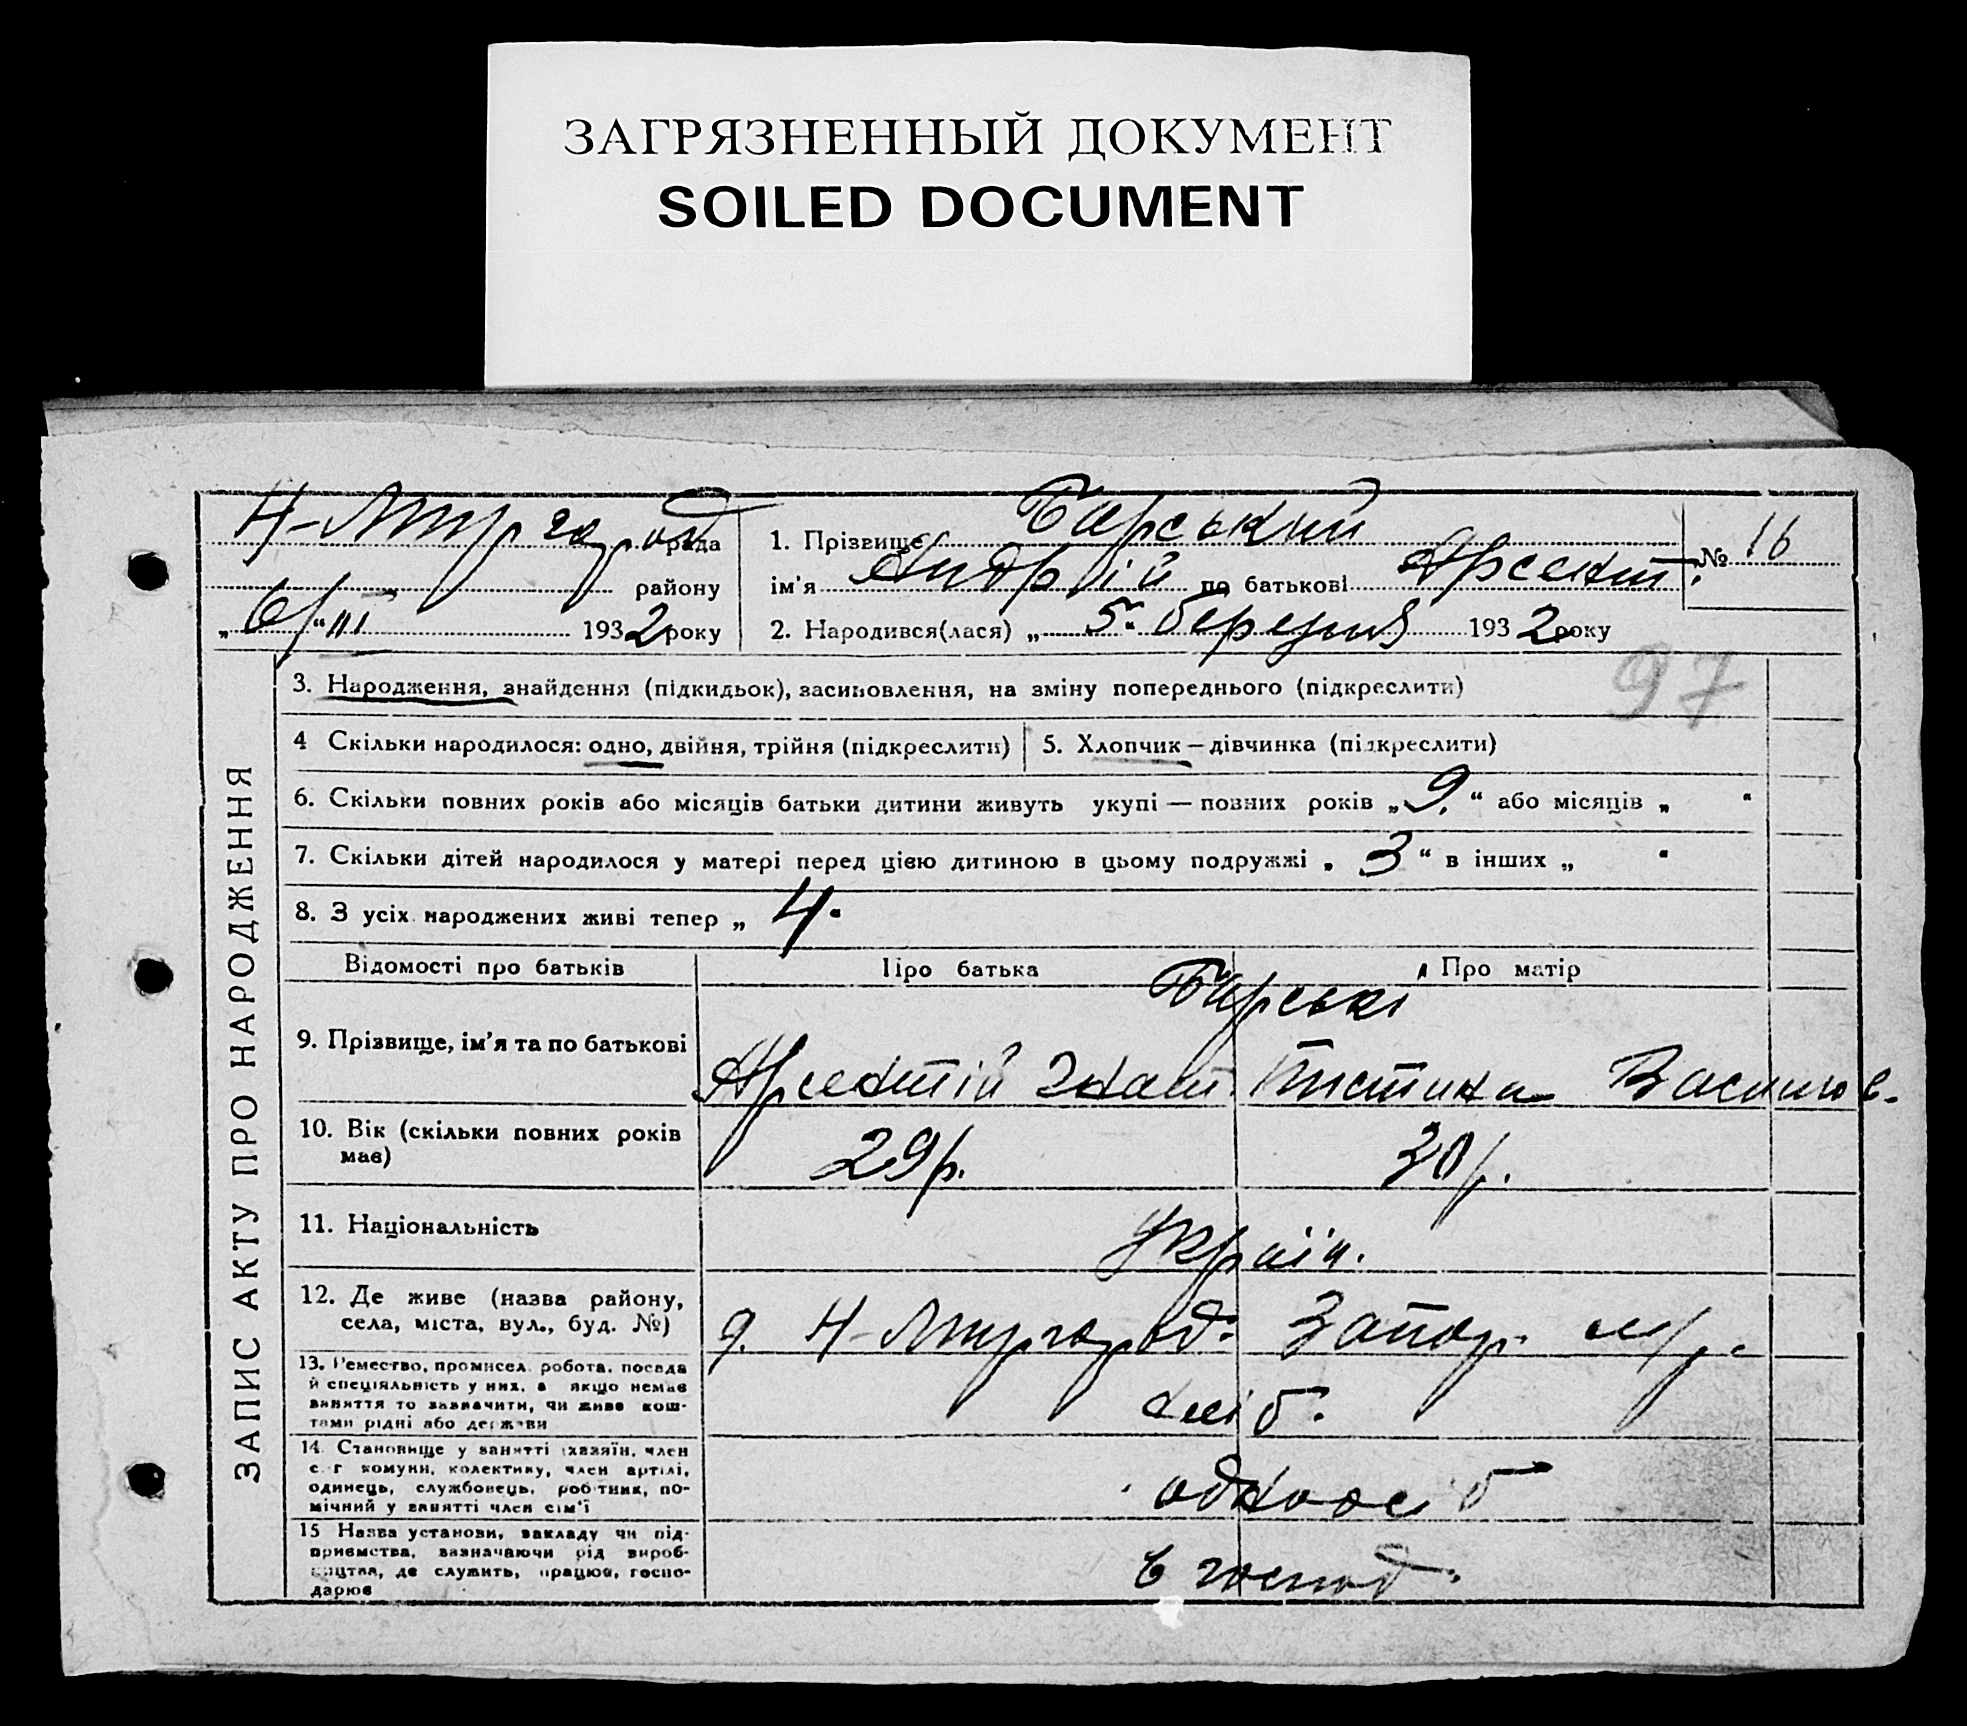 ЗАГРЯЗНЕННЫЙ ДОКУМЕНТ
SOILED DOCUMENT
Н-Миргород рада
району
„6/“ III 1932 року
1. Прізвище Барський
ім'я Андрій по батькові Арсент.
№ 16
2. Народився(лася) „5“ березня 1932 року
97
ЗАПИС АКТУ ПРО НАРОДЖЕННЯ
3. Народження, знайдення (підкидьок), засиновлення, на зміну попереднього (підкреслити)
4 Скільки народилося: одно, двійня, трійня (підкреслити)
5. Хлопчик — дівчинка (підкреслити)
6. Скільки повних років або місяців батьки дитини живуть укупі — повних років „9.“ або місяців „ “
7. Скільки дітей народилося у матері перед цією дитиною в цьому подружжі „3“ в інших „ “
8. З усіх народжених живі тепер „4.
Відомості про батьків Про батька Про матір
Барські
9. Прізвище, ім'я та по батькові
Арсентій Гнат. Тистина Васильов.
10. Вік (скільки повних років
має)
29р. 30р.
11. Національність
Україн.
12. Де живе (назва району,
села, міста, вул., буд. №)
Н-Миргород.
13. Ремество, промисел, робота, посада
й спеціяльність у них, а якщо немає
заняття то зазначити, чи живе кош-
тами рідні або держави
хліб.
14. Становище у занятті (хазяїн, член
с.-г комуни, колективу, член артілі,
одинець, службовець, робітник, по-
мічний у занятті член сім'ї
одноос б
15 Назва установи, закладу чи під-
приємства, зазначаючи рід вироб-
ництва, де служить, працює, госпо-
дарює
в господ.